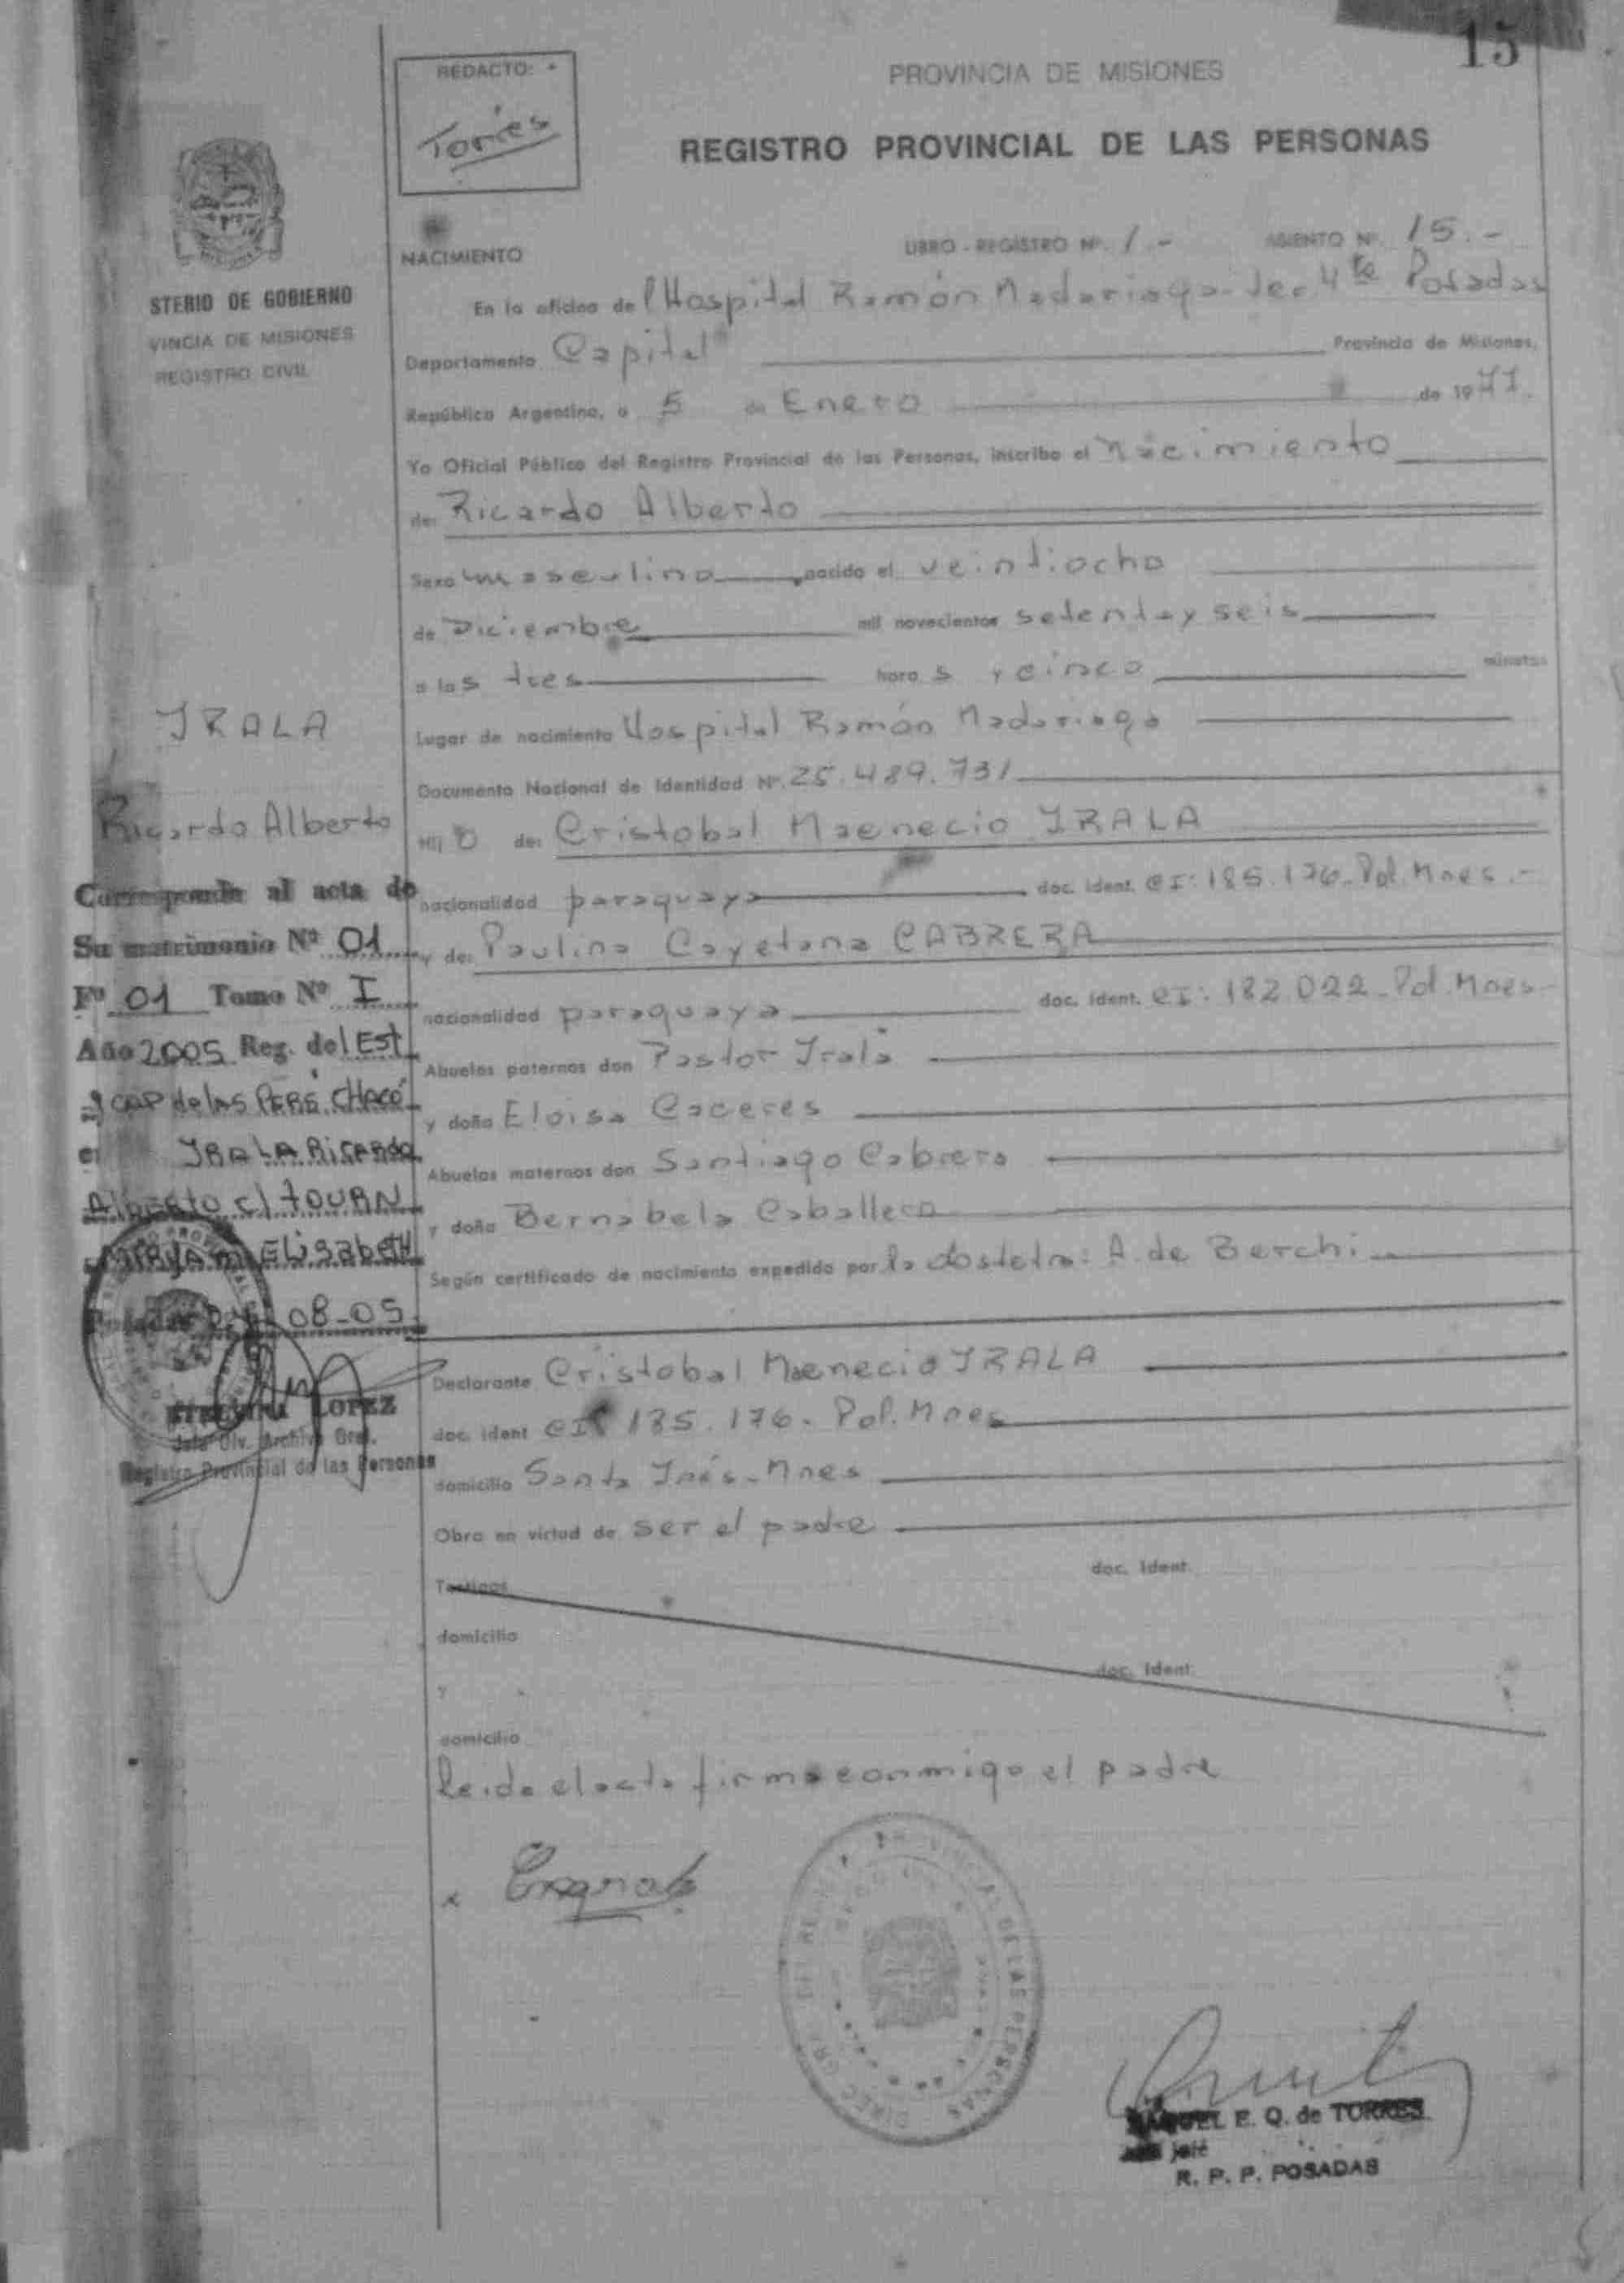 15
REDACTO:
Torres
PROVINCIA DE MISIONES
REGISTRO PROVINCIAL DE LAS PERSONAS
STERIO DE GOBIERNO
VINCIA DE MISIONES
REGISTRO CIVIL
NACIMIENTO
LIBRO - REGISTRO Nº. 1.- ASIENTO Nº. 15.-
En la oficina del Hospital Ramón Madariaga- Posadas
Departamento Capital Provincia de Misiones,
República Argentina, a 5 de Enero de 1977.
Yo Oficial Público del Registro Provincial de las Personas, inscribo el Nacimiento
de: Ricardo Alberto
Sexo masculino nacido el veintiocho
de Diciembre mil novecientos setenta y seis
a las tres hora s y cinco minutos
Lugar de nacimiento Hospital Ramón Madariaga
Documento Nacional de Identidad Nº. 25.489.731
Hij o de: Cristobal Maenecio IRALA
nacionalidad paraguaya doc. ident. CI: 185.176- Pol. Mnes.-
y de: Paulina Cayetana CABRERA
nacionalidad paraguaya doc. ident. CI: 182.022- Pol. Mnes-
Abuelos paternos don Pastor Irala
y doña Eloisa Caceres
Abuelos maternos don Santiago Cabrera
y doña Bernabela Caballero
Según certificado de nacimiento expedido por la obstetra: A. de Berchi
Declarante Cristobal Maenecio IRALA
doc. ident CI 185.176- Pol. Mnes
domicilio Santa Inés- Mnes
Obra en virtud de ser el padre
doc. ident.
Testigos
domicilio
doc. ident.
y
domicilio
Leida el acta firma conmigo el padre
IRALA
Ricardo Alberto
Corresponde al acta de
Su matrimonio Nº 01
Fº 01 Tomo Nº I
Año 2005 Reg. del Est
y CAP de las PERS. CHACO
IRALA RICARDO
Alberto c/ TOURN
Elisabeth
08-05
LOPEZ
Jefe Div. Archivo Gral.
Registro Provincial de las Personas
PROVINCIAL DE LAS PERSONAS
RAQUEL E. Q. de TORRES
jefe
R. P. P. POSADAS